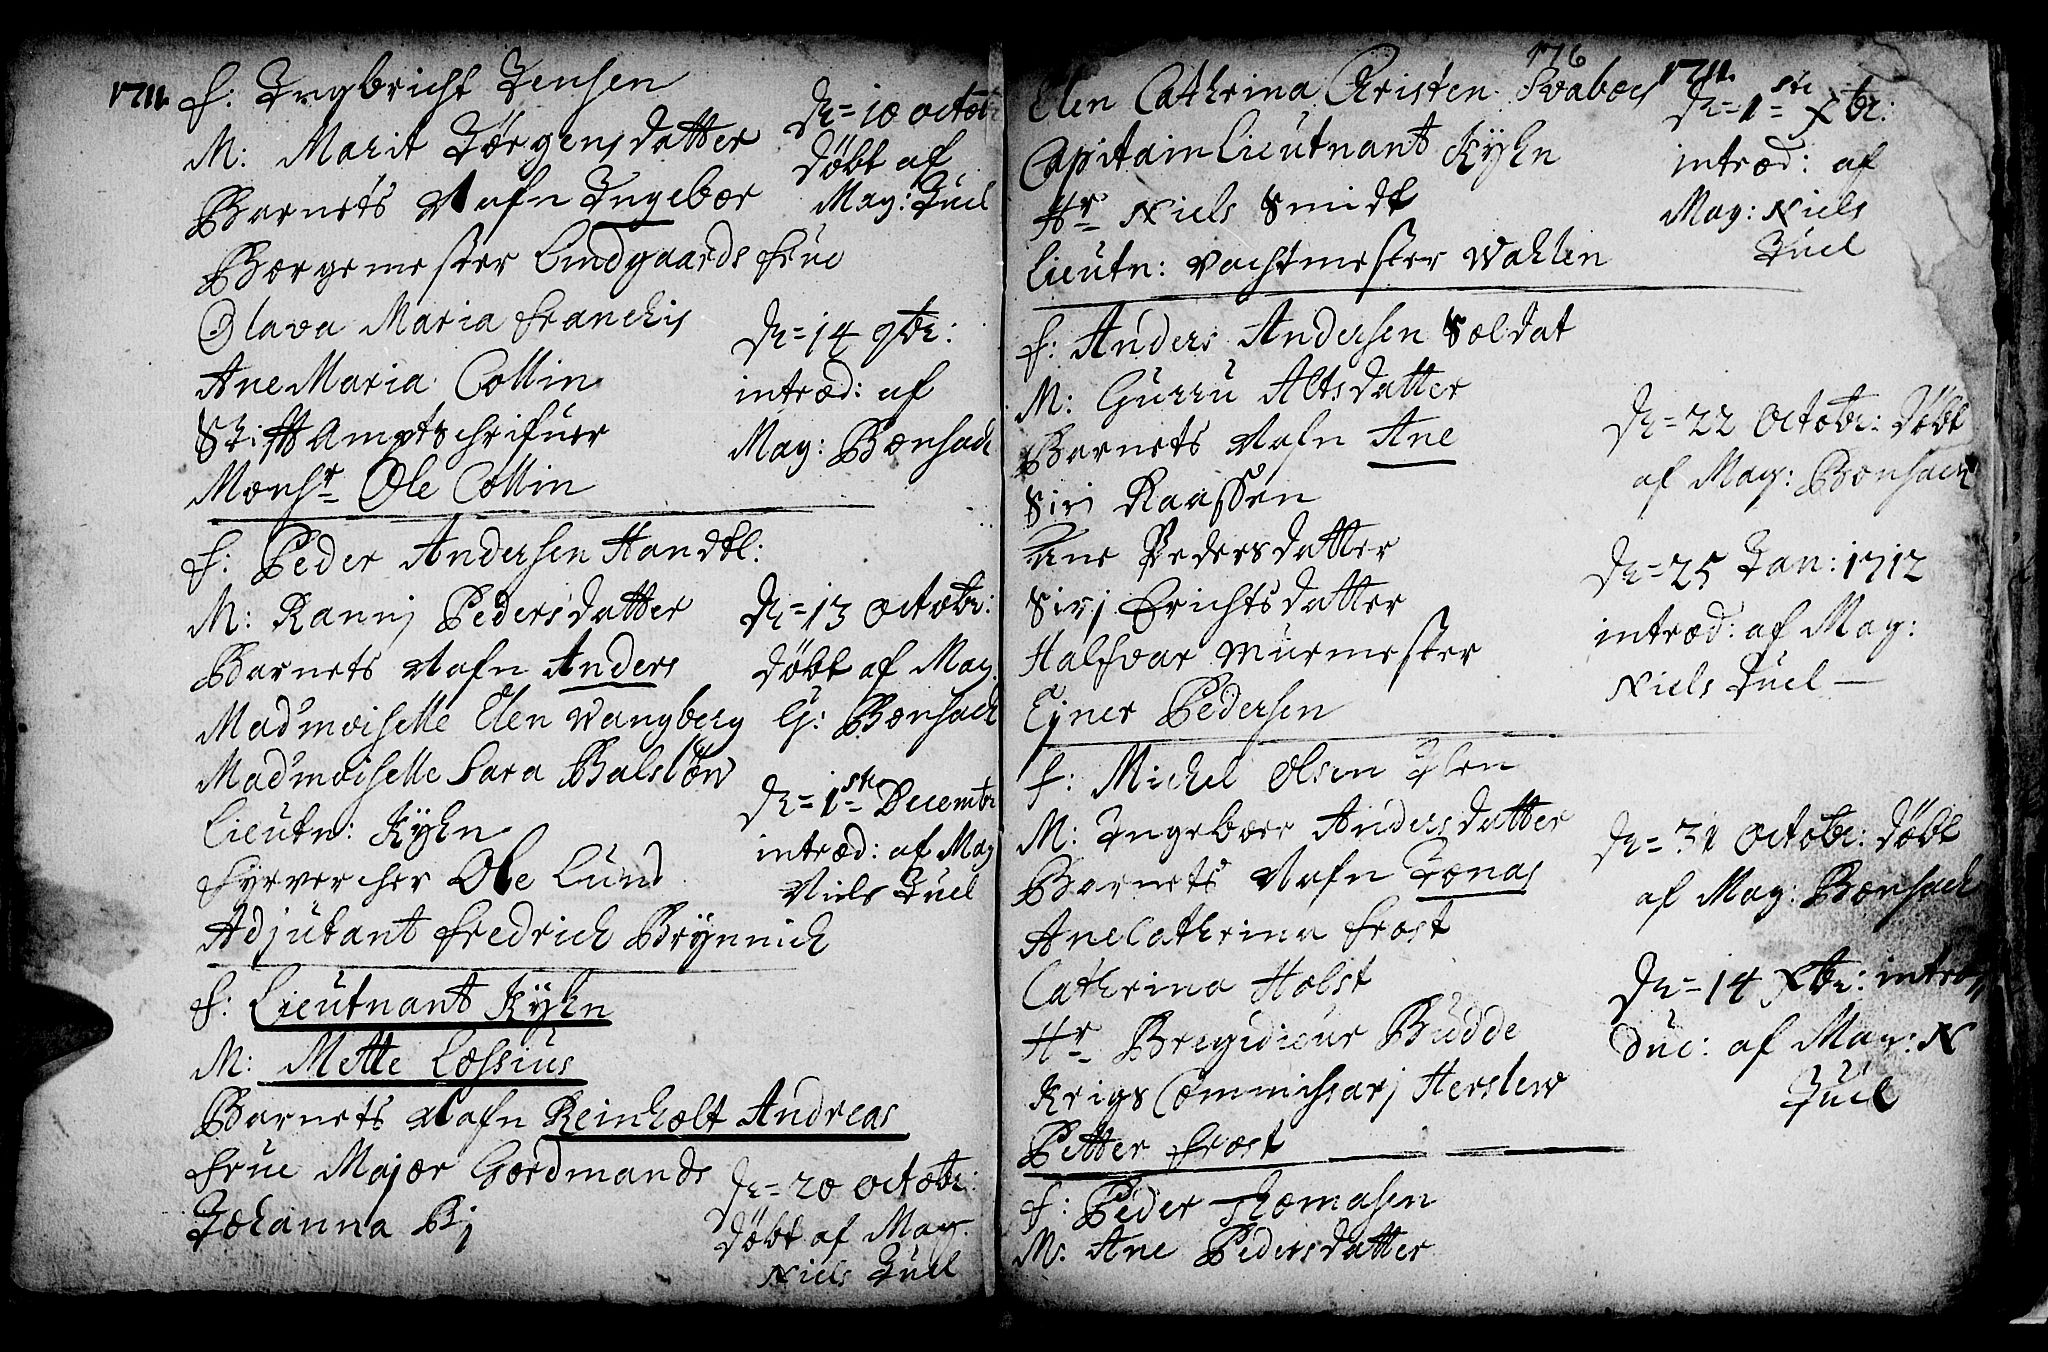 1711.
F: Ingbricht Jensen
M: Marit Jørgensdatter
Barnets Nafn Ingebor
Borgemester Lindgaards Frue
Olava Maria Franchis
Ane Maria Collin
Stifft Ampt Schrifuer
Monsr Ole Collin
D= 10 octobr
døbt af
Mag: Juel
D= 14 9br:
introd: af
Mag: Bonsach
F: Peder Andersen Handtl:
M: Rannj Pedersdatter
Barnets Nafn Anders
Madmoiselle Elen Wangberg
Madmoiselle Sara Balslow
Lieutn: Kyhn
Fyrvercher Ole Lund
Adjutant Fredrich Brynnich
D= 13 octobr:
døbt af Mag.
G: Bonsach
D= 1ste Decembr
introd: af Mag
Niels Juel
F: Lieutnant Kyhn
M: Mette Lossius
Barnets Nafn Reinholt Andreas
Frue Major Gordmands
Johanna Bj
D= 20 octobr:
døbt af Mag.
Niels Juel
176
1711.
Elen Cathrina Christen Svaboes
Capitain Lieutnant Kyhn
Hr Niels Smidt
Lieutn: Vachtmester Wahlen
D= 1ste Xbr:
introd: af
Mag: Niels
Juel
F: Anders Andersen Soldat
M: Gurru Altsdatter
Barnets Nafn Ane
Siri Raassen
Ane Pedersdatter
Sirj Erichtsdatter
Halfvar Murmester
Ejner Pedersen
D= 22 Octobr: døbt
af Mag: Bonsach
D= 25 Jan: 1712
introd: af Mag:
Niels Juel —
F: Michel Olsen Ilen
M: Ingeboer Andersdatter
Barnets Nafn Jonas
Ane Cathrina Frost
Cathrina Holst
Hr Bregidieur Budde
Krigs Commissarj Herslew
Petter Frost
D= 31 Octobr: døbt
af Mag: Bonsach
D= 14 Xbr: intro„
duc: af Mag: N
Juel
F: Peder Thomasen
M: Ane Pedersdatter